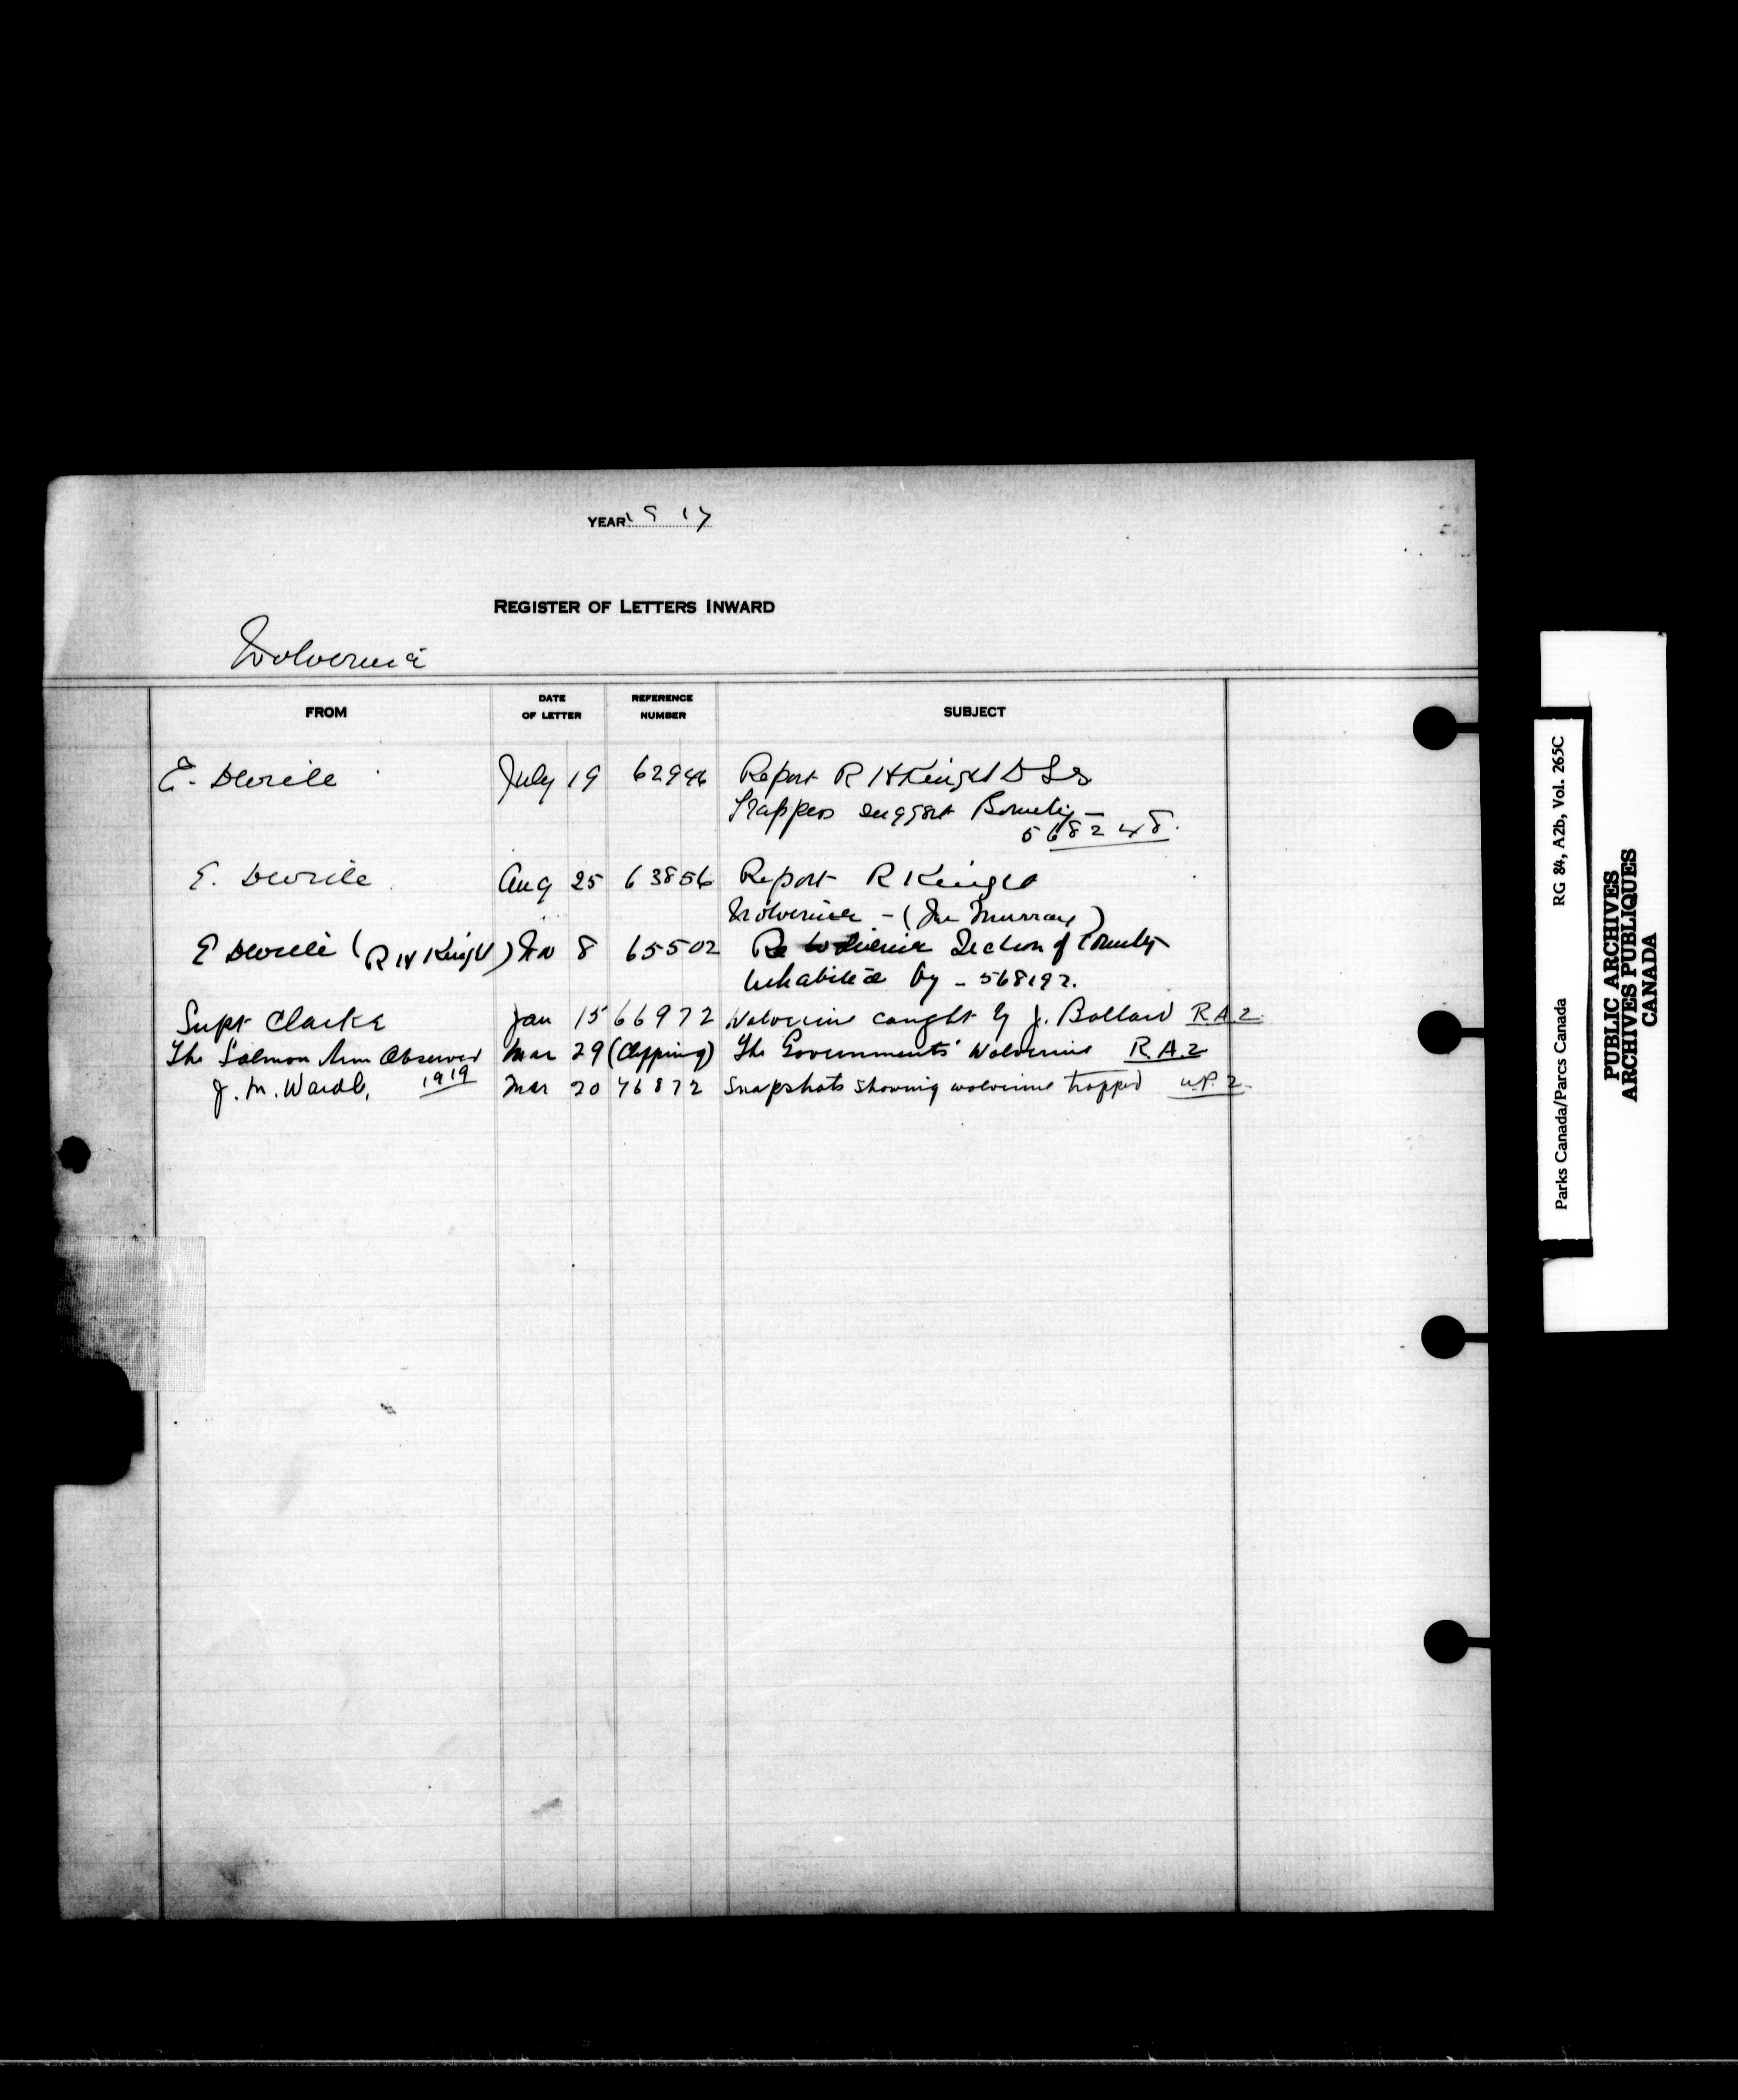 YEAR 1917
REGISTER OF LETTERS INWARD
Wolverine
FROM DATE OF LETTER REFERENCE NUMBER SUBJECT
E. Deville July 19 62946 Report R H Knight D L S
Trappers suggest Bounty -
568248.
E. Deville Aug 25 63856 Report R Knight
Wolverine - ( Murray)
E Deville (R H Knight) Nov 8 65502 Re Wolverine Section of Country
inhabited by - 568192.
Supt Clarke Jan 15 66972 Wolverine caught by J. Ballard R.A.2.
The Salmon Arm Observer Mar 29 (Clipping) The Governments' Wolverine R.A.2
J. M. Wardle, 1919 Mar 20 76872 Snapshots showing wolverine trapped U.P.2.
Parks Canada/Parcs Canada RG 84, A2b, Vol. 265C
PUBLIC ARCHIVES
ARCHIVES PUBLIQUES
CANADA